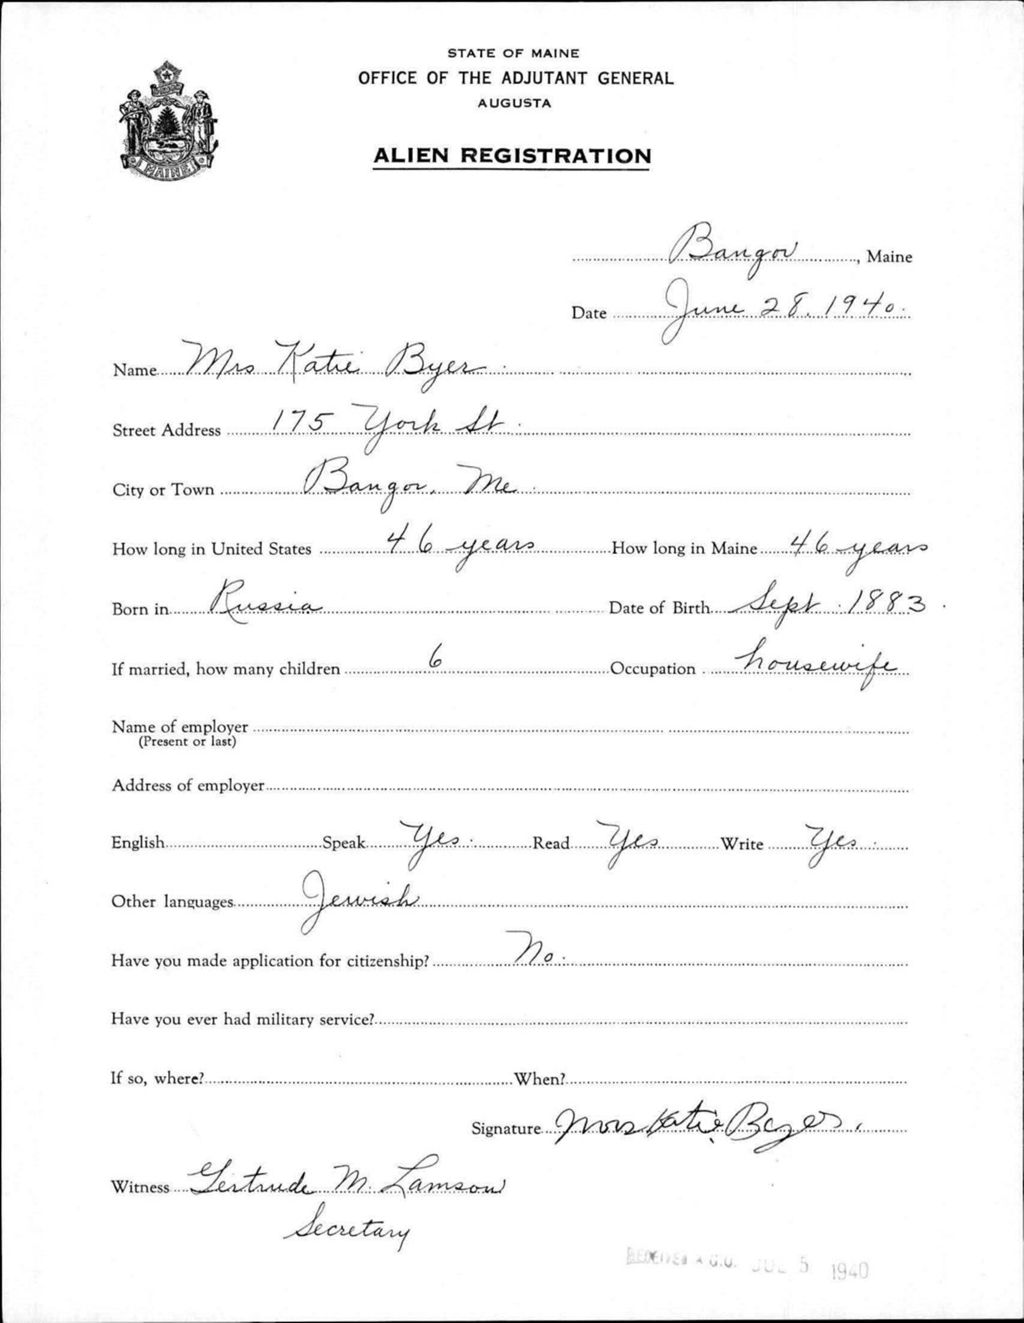 STATE OF MAINE
OFFICE OF THE ADJUTANT GENERAL
AUGUSTA
ALIEN REGISTRATION
MAINE
Bangor, Maine
Date June 28, 1940.
Name Mrs Katie Byer
Street Address 175 York St.
City or Town Bangor, Me.
How long in United States 46 years How long in Maine 46 years
Born in Russia Date of Birth Sept. 1883.
If married, how many children 6 Occupation housewife
Name of employer
(Present or last)
Address of employer
English Speak Yes. Read Yes Write Yes.
Other languages Jewish
Have you made application for citizenship? No.
Have you ever had military service?
If so, where? When?
Signature Mrs Katie Byer.
Witness Gertrude M. Lamson
Secretary
RECEIVED A.G.O. JUL 5 1940